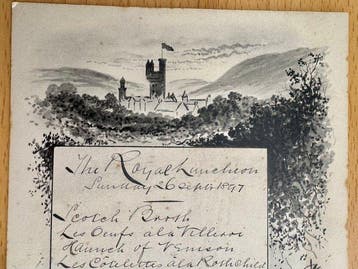 The Royal Luncheon
Sunday 26 Sept: 1897
Scotch Broth
Les Oeufs à la Villeroi
Haunch of Venison
Les Côtelettes à la Rothchild